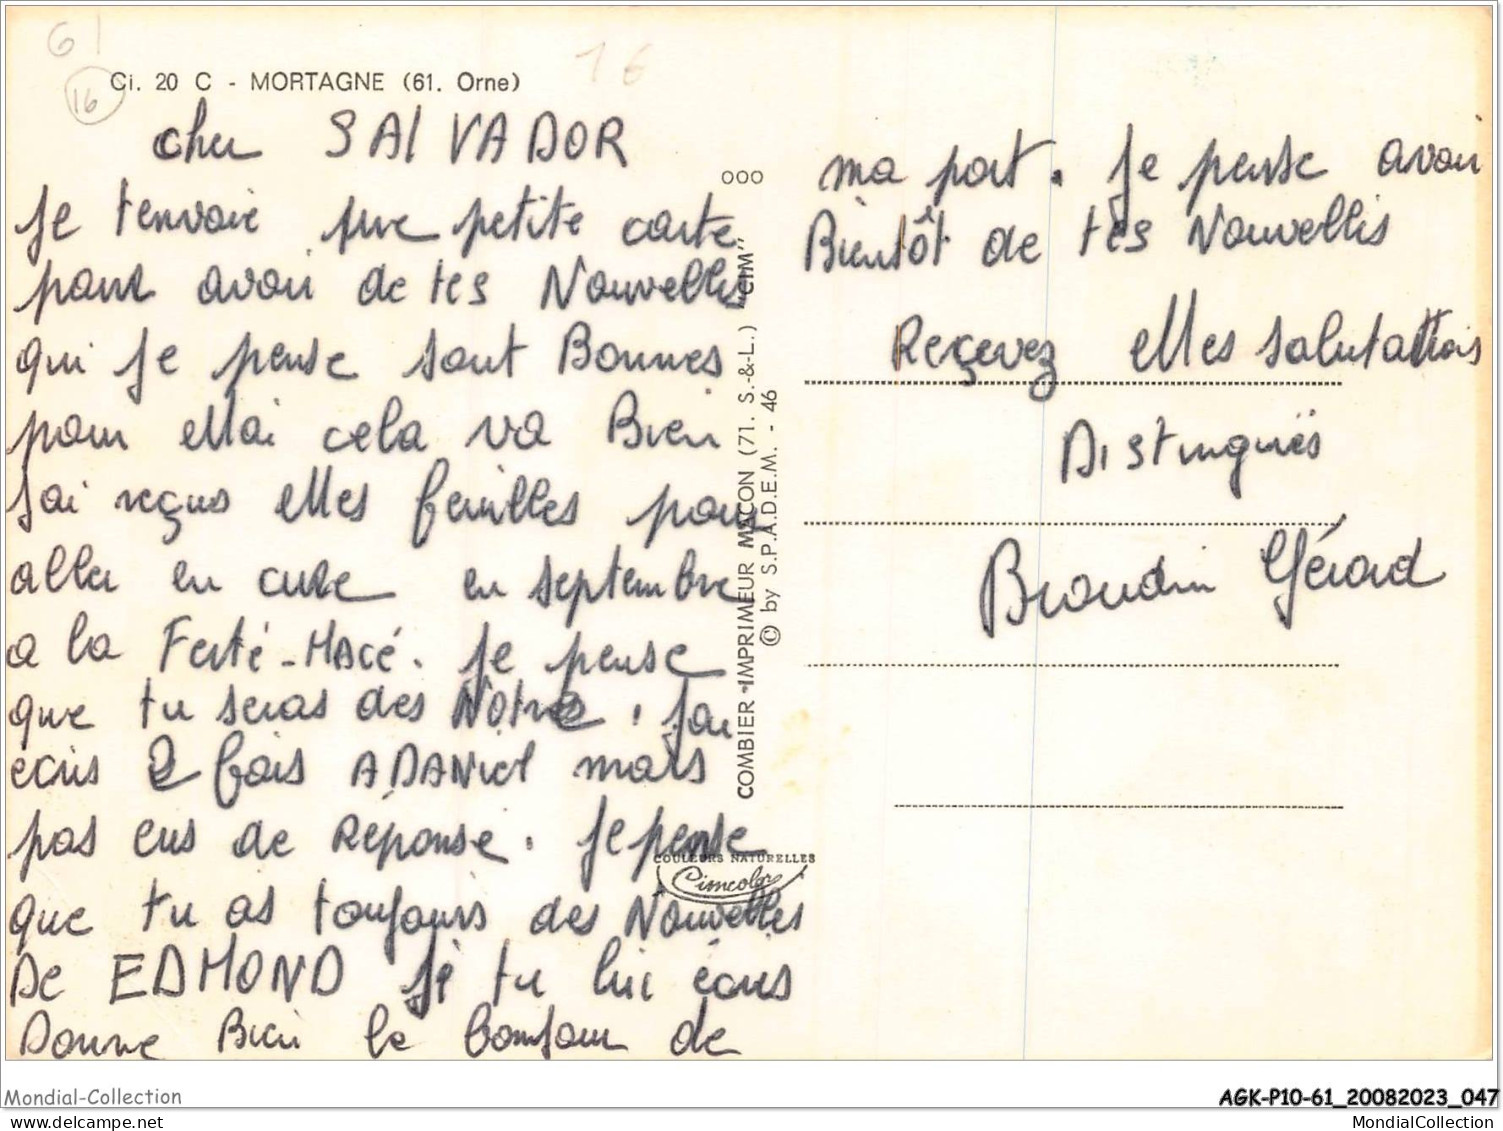 61
16
16
Ci. 20 C - MORTAGNE (61. Orne)
cher SALVADOR
Je t'envoie une petite carte
pour avoir de tes Nouvelles
qui je pense sont Bonnes
pour Moi cela va Bien
J'ai reçus Mes feuilles pour
aller en cure en septembre
a la Ferté-Macé. Je pense
que tu seras des Notres. J'ai
ecris 2 fois A DANIEL mais
pas eus de Réponse. Je pense
que tu as toujours des Nouvelles
De EDMOND si tu lui écris
Donne Bien le bonjour de
ooo
COMBIER IMPRIMEUR MACON (71. S.-&-L.) "CIM"
© by S.P.A.D.E.M. - 46
COULEURS NATURELLES
Cimcolor
ma part. Je pense avoir
Bientôt de tes Nouvelles
Reçevez Mes salutations
Distingués
Gérard
Mondial-Collection
AGK-P10-61_20082023_047
delcampe.net
MondialCollection